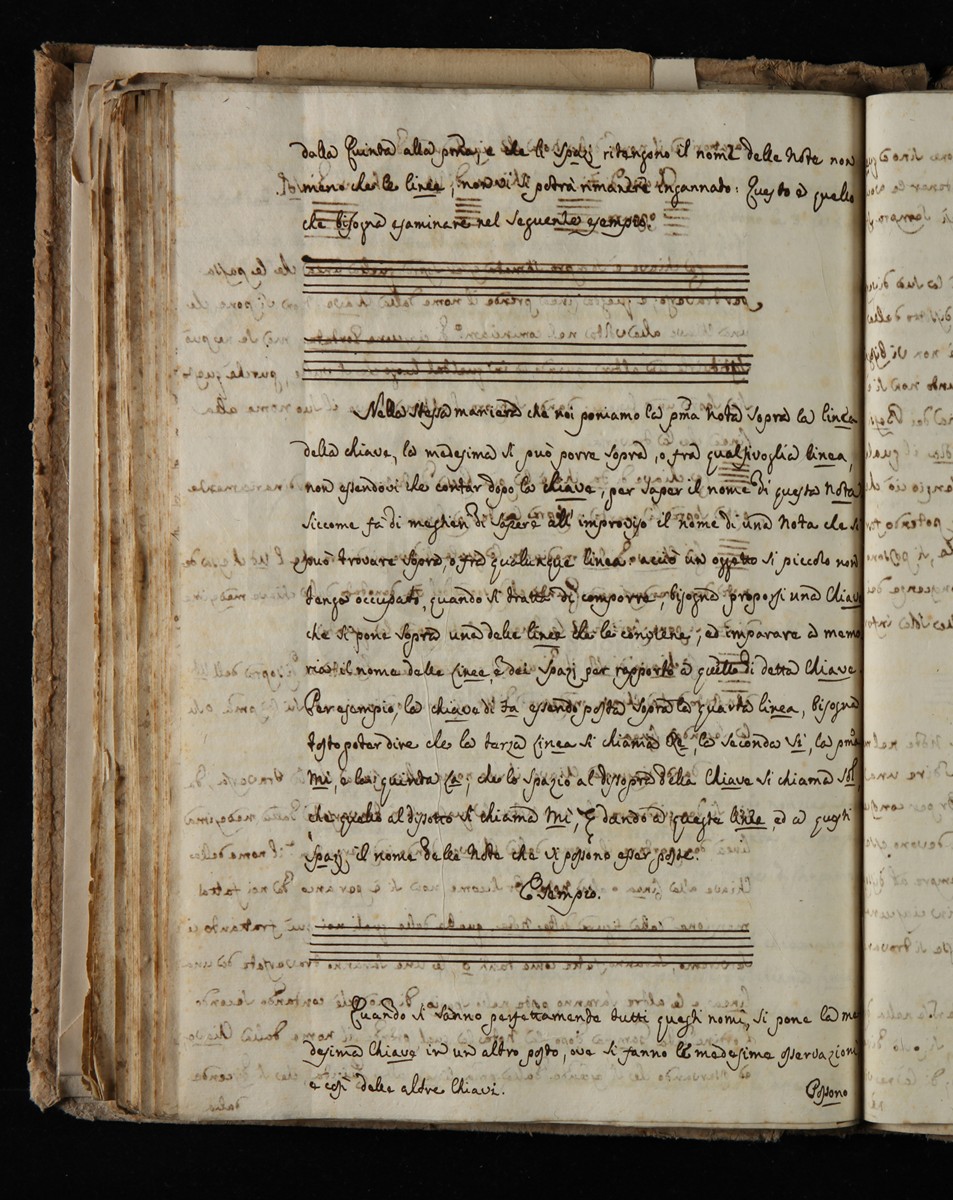 dalla Quinta alla pma, e che li spazj ritengono il nome delle Note non
meno che le linee, non vi si potrà rimanere ingannato: Questo è quello
che bisogna esaminare nel seguente esempio.
Nella stessa maniera che noi poniamo la pma Nota sopra la linea
della chiave, la medesima si può porre sopra, o frà qualsivoglia linea,
non essendovi che contar dopo la chiave, per saper il nome di questa Nota
siccome fà di mestieri di sapere all' improviso il nome di una Nota che si
può trovare sopra, o frà qualunque linea: acciò un oggetto si piccolo non
tenga occupato, quando si tratta di comporre, bisogna proporsi una Chiave
che si pone sopra una delle linee che la contiene, ed imparare à memo
ria il nome delle linee, e dei spazj per rapporto à quello di detta Chiave
Per esempio, la chiave di fa essendo posta sopra la quarta linea, bisogna
tosto poter dire che la terza linea si chiama Re, la seconda Si, la pma
Mi, e la quinta La; che lo spazio al disopra della Chiave si chiama Sol
che quello al disotto si chiama Mi, dando à queste linee, ed à questi
spazj il nome delle Note che vi possono esser poste.
Esempio.
Quando si sanno perfettamente tutti questi nomi, si pone la me
desima Chiave in un altro posto, ove si fanno le medesime osservazioni
e così delle altre Chiavi.
Possono